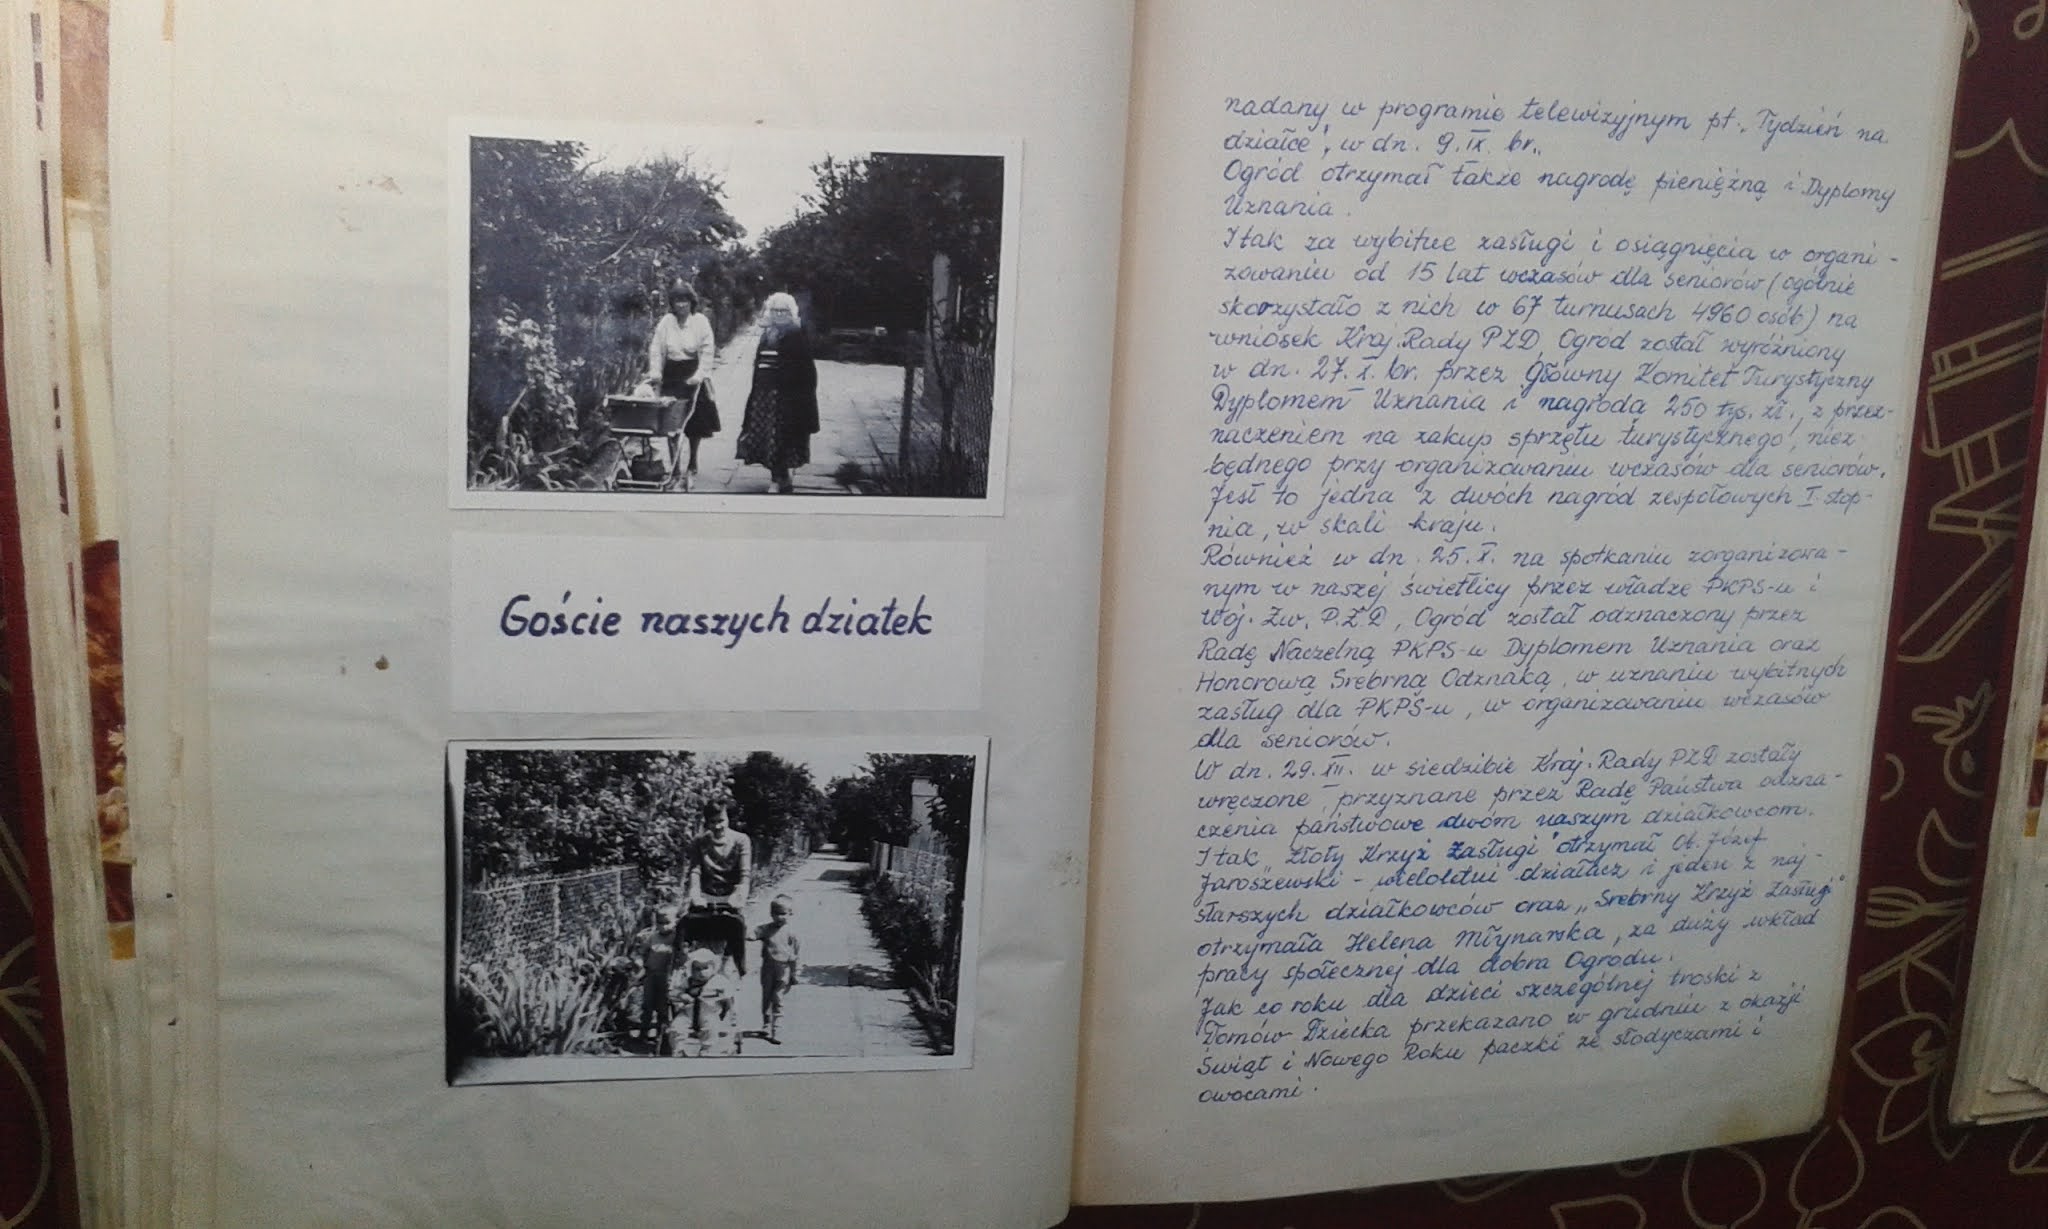 Goście naszych działek
nadany w programie telewizyjnym pt. „Tydzień na
działce", w dn. 9. IX. br..
Ogród otrzymał także nagrodę pieniężną i Dyplomy
Uznania.
I tak za wybitne zasługi i osiągnięcia w organi-
zowaniu od 15 lat wczasów dla seniorów (ogólnie
skorzystało z nich w 67 turnusach 4960 osób) na
wniosek Kraj. Rady PZD, Ogród został wyróżniony
w dn. 27. X. br. przez Główny Komitet Turystyczny
Dyplomem Uznania i nagrodą 250 tys. zł., z przez-
naczeniem na zakup sprzętu turystycznego, niez-
będnego przy organizowaniu wczasów dla seniorów.
Jest to jedna z dwóch nagród zespołowych I stop-
nia, w skali kraju.
Również w dn. 25. X. na spotkaniu zorganizowa-
nym w naszej świetlicy przez władze PKPS-u i
Woj. Zw. P.Z.D, Ogród został odznaczony przez
Radę Naczelną PKPS-u Dyplomem Uznania oraz
Honorową Srebrną Odznaką, w uznaniu wybitnych
zasług dla PKPS-u, w organizowaniu wczasów
dla seniorów.
W dn. 29. XII. w siedzibie Kraj. Rady PZD zostały
wręczone, przyznane przez Radę Państwa odzna-
czenia państwowe dwóm naszym działkowcom.
I tak „Złoty Krzyż Zasługi" otrzymał Ob. Józef
Jaroszewski - wieloletni działacz i jeden z naj-
starszych działkowców oraz „Srebrny Krzyż Zasługi"
otrzymała Helena Młynarska, za duży wkład
pracy społecznej dla dobra Ogrodu.
Jak co roku dla dzieci szczególnej troski z
Domów Dziecka przekazano w grudniu z okazji
Świąt i Nowego Roku paczki ze słodyczami i
owocami.